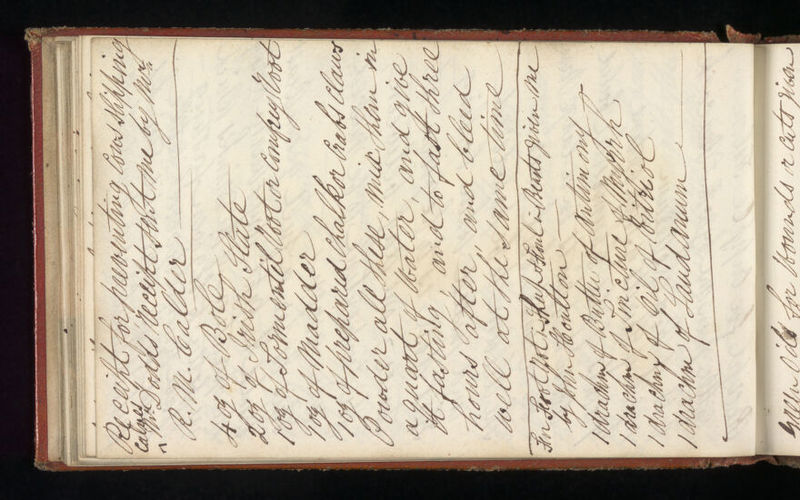 Receipt for preventing Cows Slipping
Calves Receipt sent me by Mrs
R. M. Calder
4 oz of Bole
2 oz of Irish Slate
1 oz of Tormentil Root or Comfrey Root
1 oz of Madder
1 oz of prepared Chalk or Crabs Claws
Powder all these, mix them in
a quart of Water, and give
it fasting and to fast three
hours after, and bleed
well at the same time
For Foot Rot in Sheep & Foul in Beasts given me
by Mr Houlton
1 drachm of Butter of Antimony
1 drachm of Tincture of Myrrh
1 drachm of Oil of Vitriol
1 drachm of Laudanum
Green Oils for Wounds or Cuts given